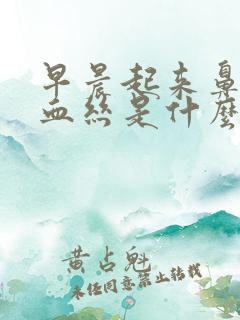 早晨起来鼻
血丝是什么
黄占魁
未经同意禁止转载